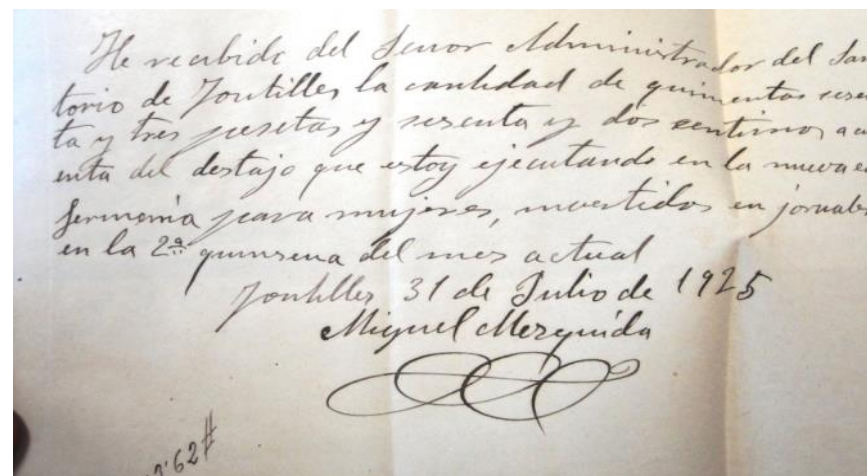 He recibido del Senor Administrador del San
torio de Fontilles la cantidad de quinientas sesen
ta y tres pesetas y sesenta y dos sentimos a cu
enta del destajo que estoy ejecutando en la nueva en
fermeria para mujeres, invertidos en jornales
en la 2ª quinsena del mes actual
Fontilles 31 de Julio de 1925
Miguel Mezquida
62#